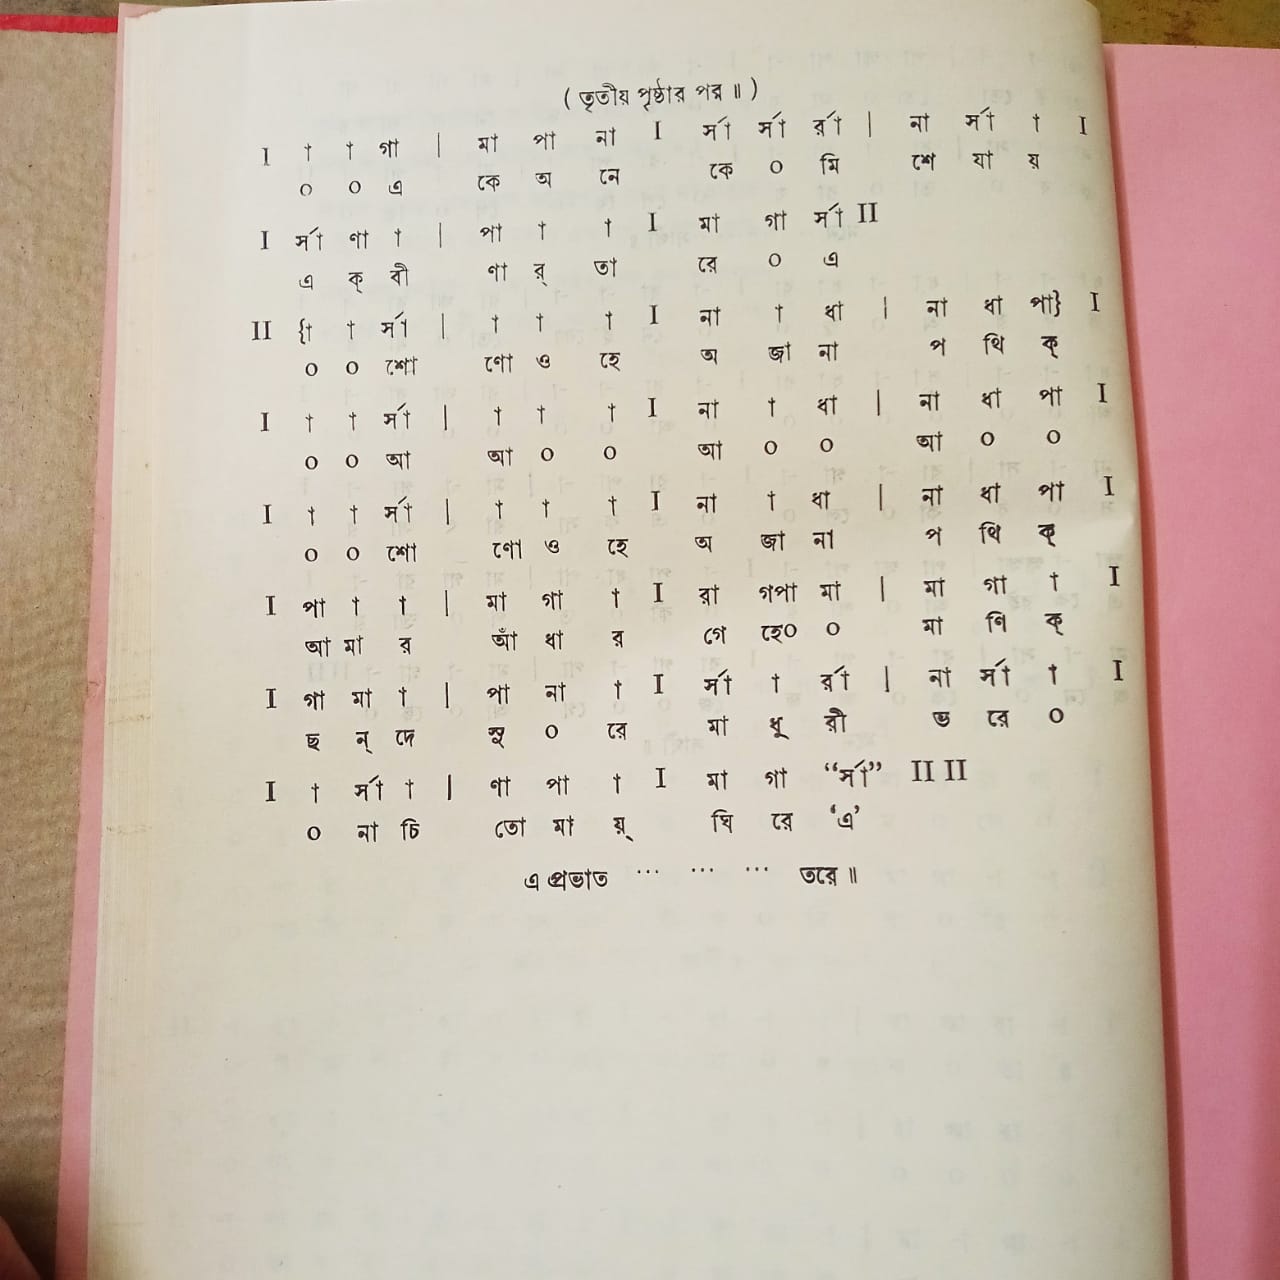 ( তৃতীয় পৃষ্ঠার পর ॥ )
I † † গা | মা পা না I র্সা র্সা র্রা | না র্সা † I
০ ০ এ কে অ নে কে ০ মি শে যা য়
I র্সা ণা † | পা † † I মা গা র্সা II
এ ক্ বী ণা র্ তা রে ০ এ
II {† † র্সা | † † † I না † ধা | না ধা পা} I
০ ০ শো ণো ও হে অ জা না প থি ক্
I † † র্সা | † † † I না † ধা | না ধা পা I
০ ০ আ আ ০ ০ আ ০ ০ আ ০ ০
I † † র্সা | † † † I না † ধা | না ধা পা I
০ ০ শো ণো ও হে অ জা না প থি ক্
I পা † † | মা গা † I রা গপা মা | মা গা † I
আ মা র আঁ ধা র গে হে০ ০ মা ণি ক্
I গা মা † | পা না † I র্সা † র্রা | না র্সা † I
ছ ন্ দে সু ০ রে মা ধু রী ভ রে ০
I † র্সা † | ণা পা † I মা গা “র্সা” II II
০ না চি তো মা য়্ ঘি রে ‘এ’
এ প্রভাত ··· ··· ··· তরে ॥